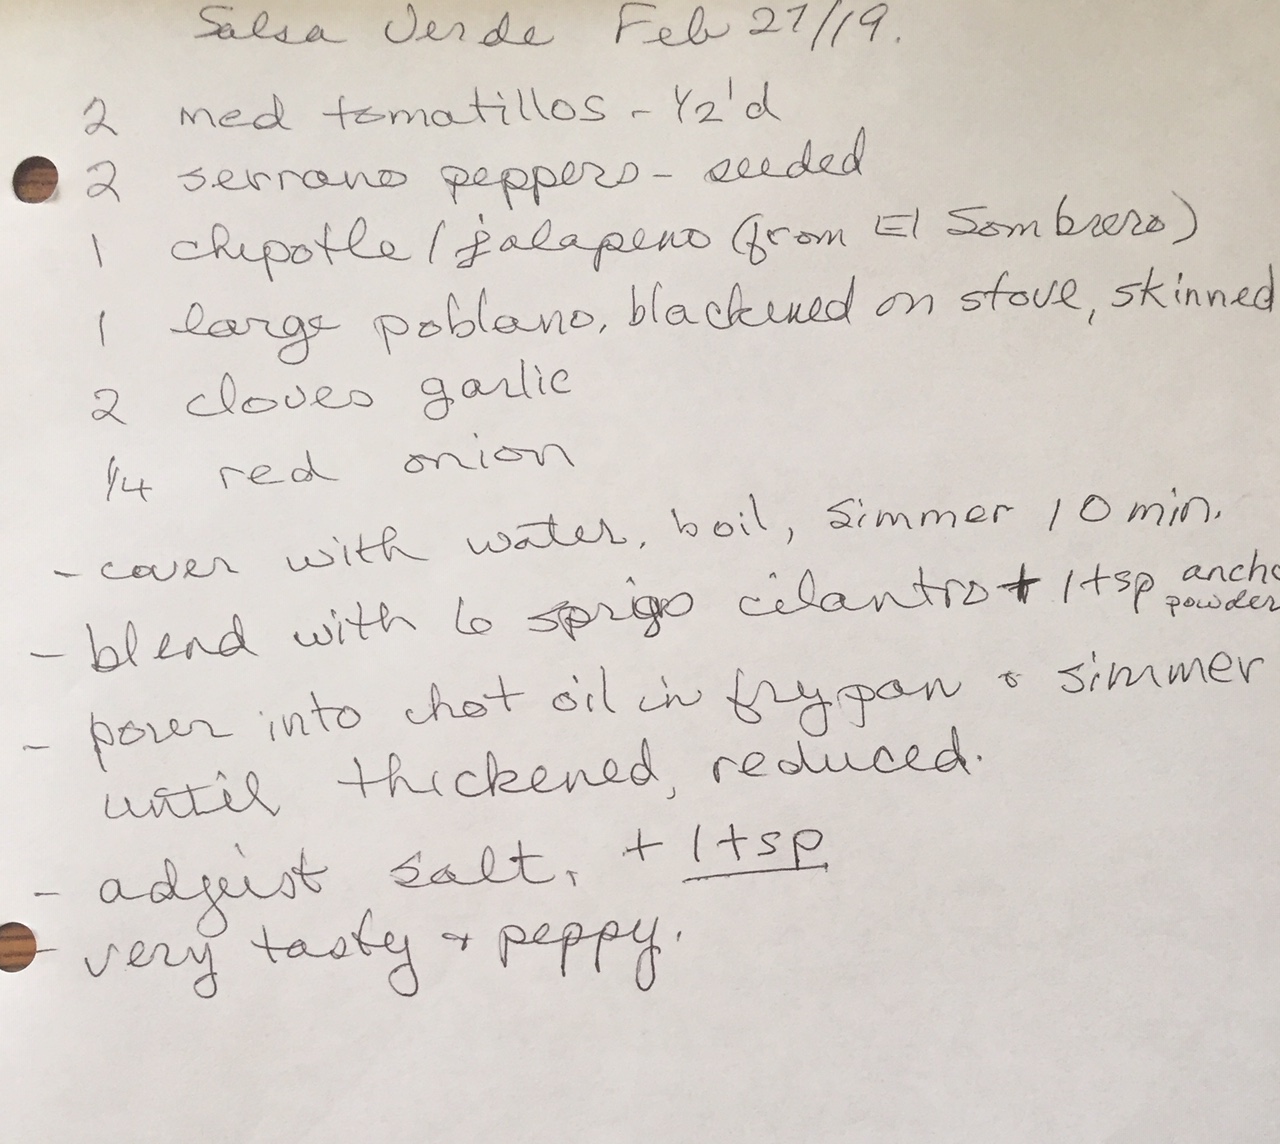 Salsa Verde Feb 27/19.
2 med tomatillos - 1/2'd
2 serrano peppers - seeded
1 chipotle/jalapeno (from El Sombrero)
1 large poblano, blackened on stove, skinned
2 cloves garlic
1/4 red onion
- cover with water, boil, simmer 10 min.
- blend with 6 sprigs cilantro + 1 tsp ancho powder
- pour into hot oil in frypan & simmer
until thickened, reduced.
- adjust salt, + 1 tsp
- very tasty + peppy.